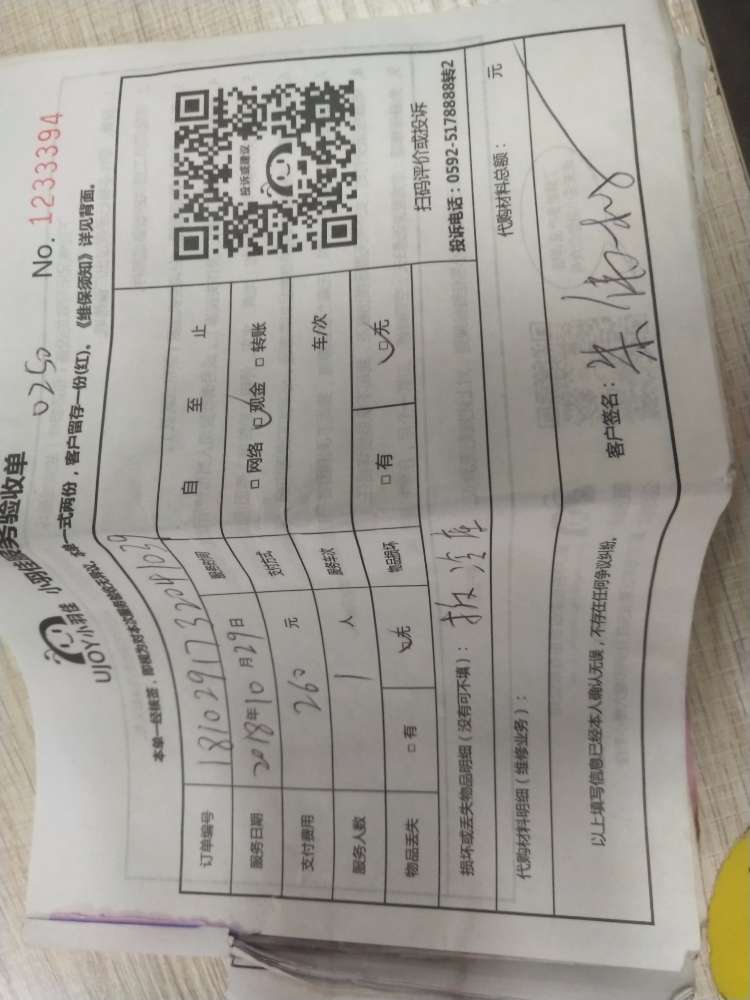 务验收单 0250 No. 1233394
UJOY小羽佳
一式两份，客户留存一份(红)。《维保须知》详见背面。
订单编号
服务日期 2018年10月29日 自 至 止
支付费用 260 元 支付方式 □网络 ☑现金 □转账
服务人数 1 人 服务车次 车/次
物品丢失 □有 ☑无 物品损坏 □有 ☑无
投诉或建议
扫码评价或投诉
投诉电话：0592-5178888转2
损坏或丢失物品明细（没有可不填）：拆冷库
代购材料明细（维修业务）： 代购材料总额： 元
以上填写信息已经本人确认无误，不存在任何争议纠纷。 客户签名：